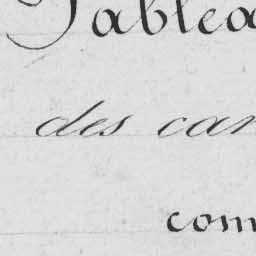 Tablea
des can
com